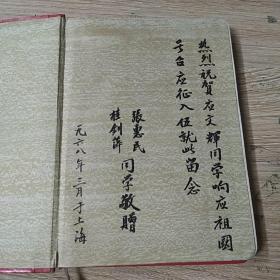 热烈祝贺应文辉同学响应祖国
号召应征入伍就此留念
張惠民
桂剑萍
同学敬贈
一九六八年三月于上海